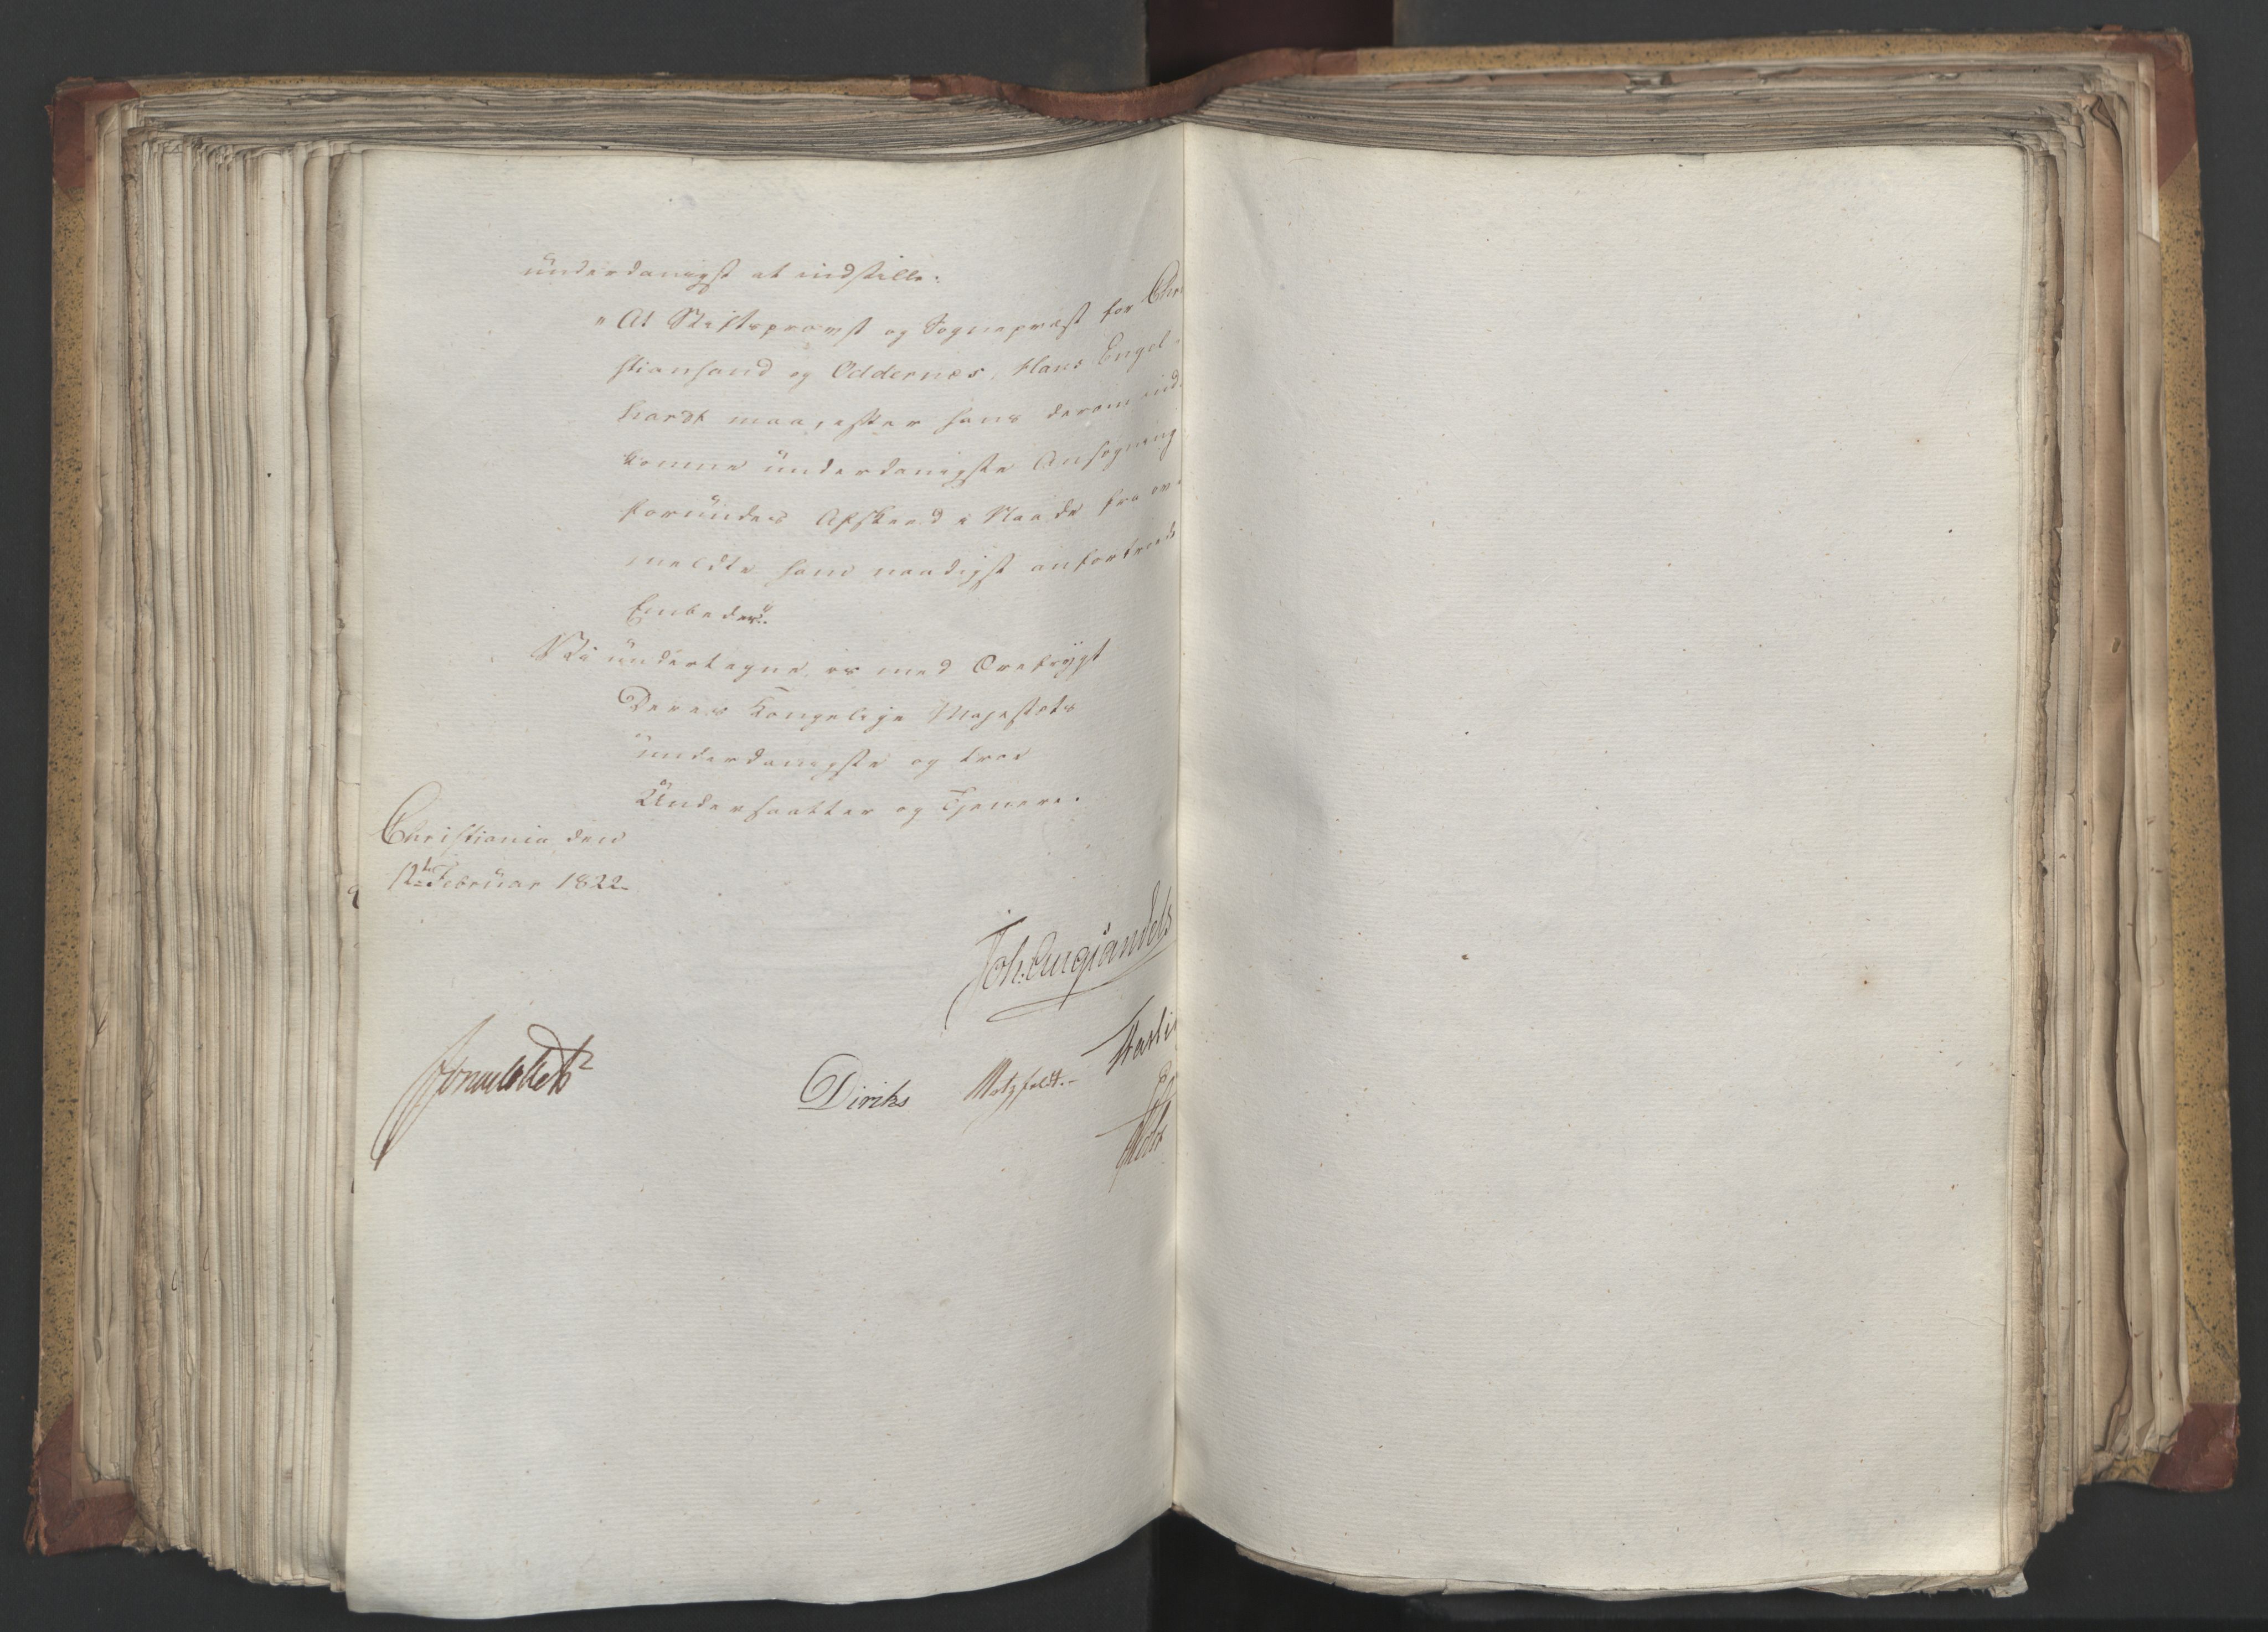 underdanigst at indstille:
"At Stiftsprovst og Sognepræst for Chri
stiansand og Oddernæs, Hans Engel-
hardt maa, efter hans derom ind-
komne underdanigste Ansøgning
forundes Afskeed i Naade fra om-
meldte ham naadigst anfortroede
Embeder".
Vi undertegne os med Ærefrygt
Deres Kongelige Majestæts
underdanigste og troe
Undersaatter og Tjenere.
Christiania den
12te Februar 1822.
Joh. Aug. Sandels
Diriks Motzfeldt.